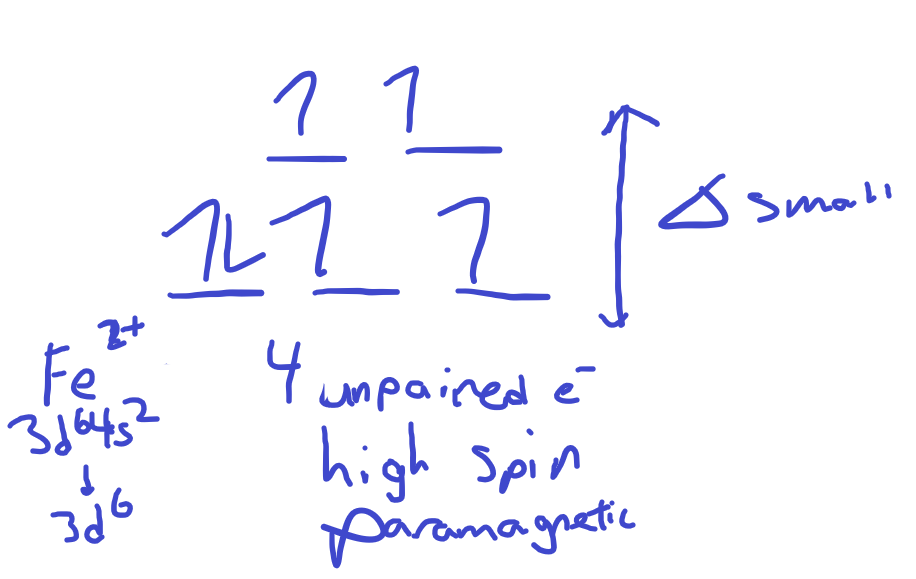 1 1
Δ small
1 1 1 1
Fe²⁺
3d⁶4s²
↓
3d⁶
4 unpaired e⁻
high spin
paramagnetic